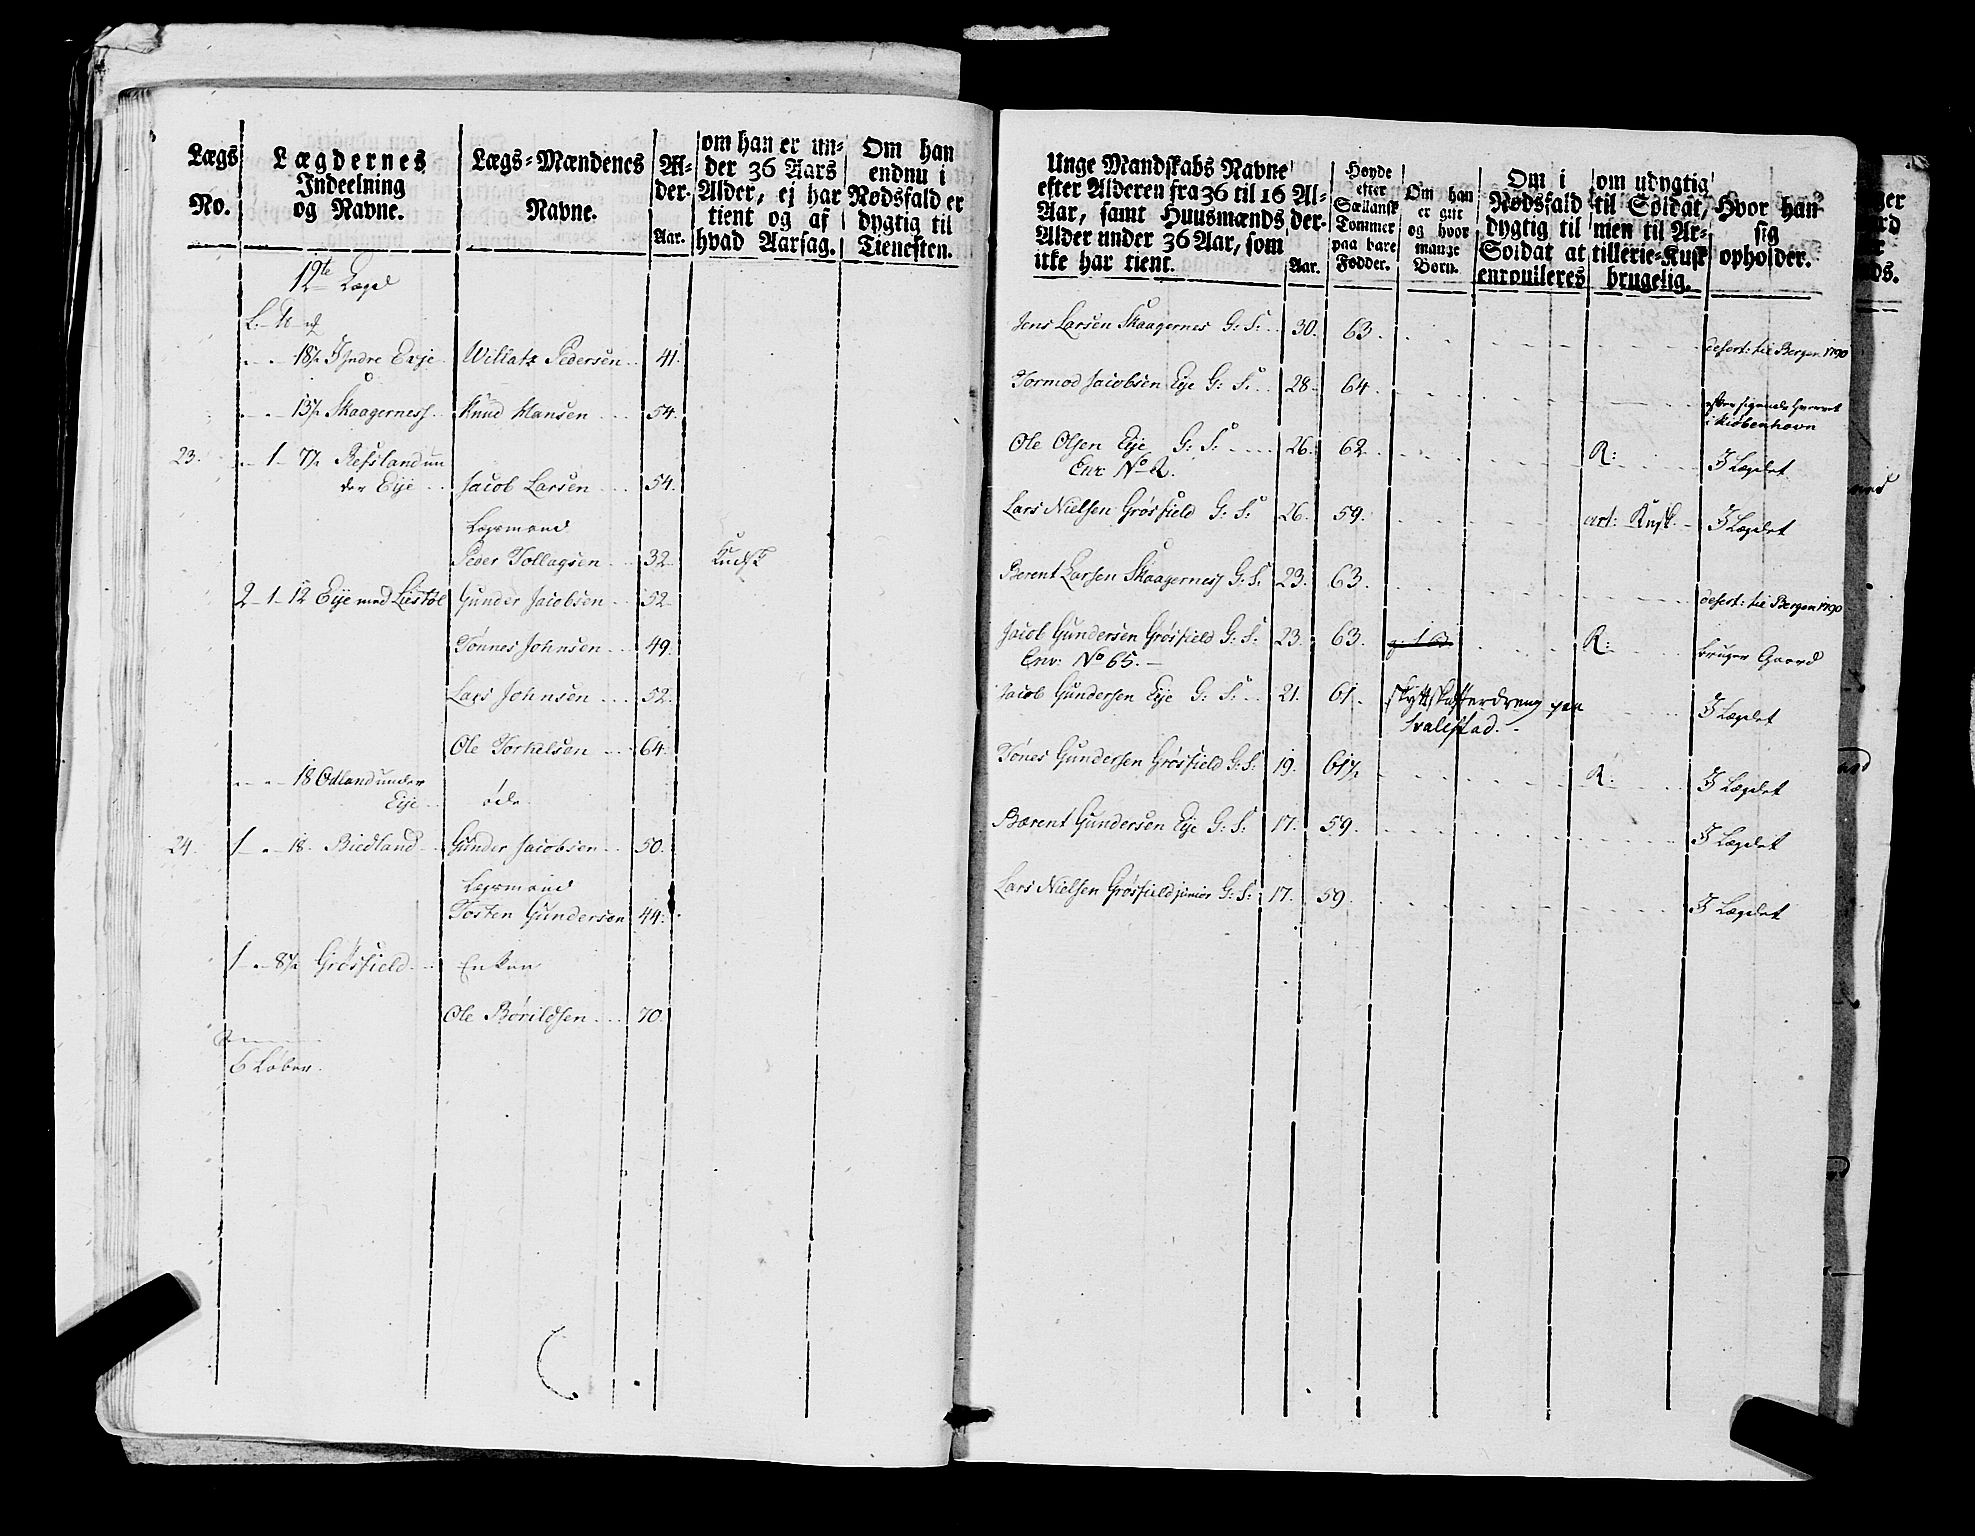 Lægs
No.
Lægdernes
Indeelning
og Navne.
Lægs-Mændenes
Navne.
Al-
der.
Aar.
om han er un-
der 36 Aars
Alder, ej har
tient og af
hvad Aarsag.
Om han
endnu i
Nødsfald er
dygtig til
Tienesten.
12te Lægd
18½ Indre Eeje Willatz Pedersen 41.
13½ Skaagernes Knud Hansen 54.
23. 1 7½ Refsland un
der Eije Jacob Larsen 54.
Lægsmand
Peder Tollagsen 32 Kudsk
2 1 12 Eije med Liestøl Gunder Jacobsen 52
Tønnes Johnsen 49.
Lars Johnsen 52.
Ole Torkelsen 64.
18 Odland under
Eije øde
24. 1 18. Biedland Gunder Jacobsen 50.
Lægsmand
Tosten Gundersen 44.
1 8½ Grøsfield Enken
Ole Børildsen 70.
6 Løber.
Unge Mandskabs Navne
efter Alderen fra 36 til 16
Aar, samt Huusmænds
Alder under 36 Aar, som
ikke har tient.
Al-
der.
Aar.
Høyde
efter
Sælansk
Tommer
paa bare
Fødder.
Om han
er gift
og hvor
mange
Børn.
Om i
Nødsfald
dygtig til
Soldat at
enroulleres
om udygtig
til Soldat,
men til Ar-
tillerie-Kusk
brugelig.
Hvor han
sig
opholder.
Jens Larsen Skaagernes G: S: 30. 63. desert: til Bergen 1790
Tormod Jacobsen Eije G: S: 28. 64. efter sigende hvervet
i Kiøbenhavn
Ole Olsen Eije G: S: 26. 62. R: I Lægdet
Enr: No 2.
Lars Nielsen Grøsfield G: S: 26. 59. art: Kusk I Lægdet
Berent Larsen Skaagernes G: S: 23. 63. desert: til Bergen 1790
Jacob Gundersen Grøsfield G: S: 23. 63. R: bruger Gaard
Enr: No 65.
Jacob Gundersen Eije G: S: 21. 61. skyttskafferdreng paa I Lægdet
Svalestad.
Tønes Gundersen Grøsfield G: S: 19. 61½ R: I Lægdet
Bærent Gundersen Eije G: S: 17. 59. I Lægdet
Lars Nielsen Grøsfield junior G: S: 17. 59. I Lægdet